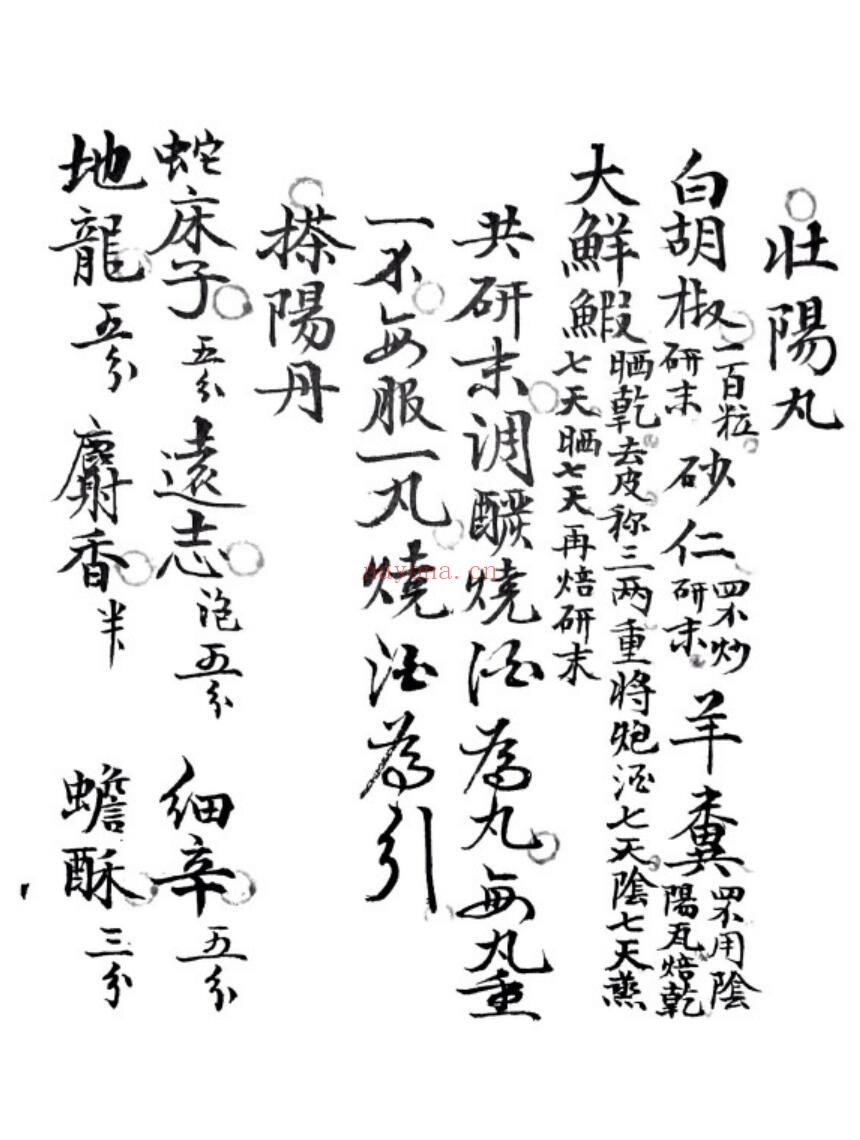 壯陽丸
白胡椒二百粒研末 砂仁四不炒研末 羊糞四不用陰陽瓦焙乾
大鮮鰕晒乾去皮称三两重將炮酒七天陰七天蒸七天晒七天再焙研末
共研末調釅燒酒為丸每丸重
一不每服一丸燒酒為引
搽陽丹
蛇床子五分 遠志泡五分 細辛五分
地龍五分 麝香半 蟾酥三分
nayona.cn